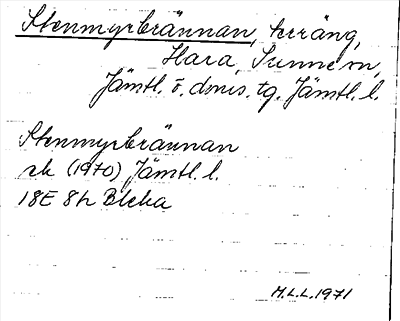 Stenmyrbrännan, terräng,
Hara, Sunne sn,
Jämtl. ö. dms. tg. Jämtl. l.
Stenmyrbrännan
ek (1970) Jämtl. l.
18E 8h Bleka
M.L.L. 1971